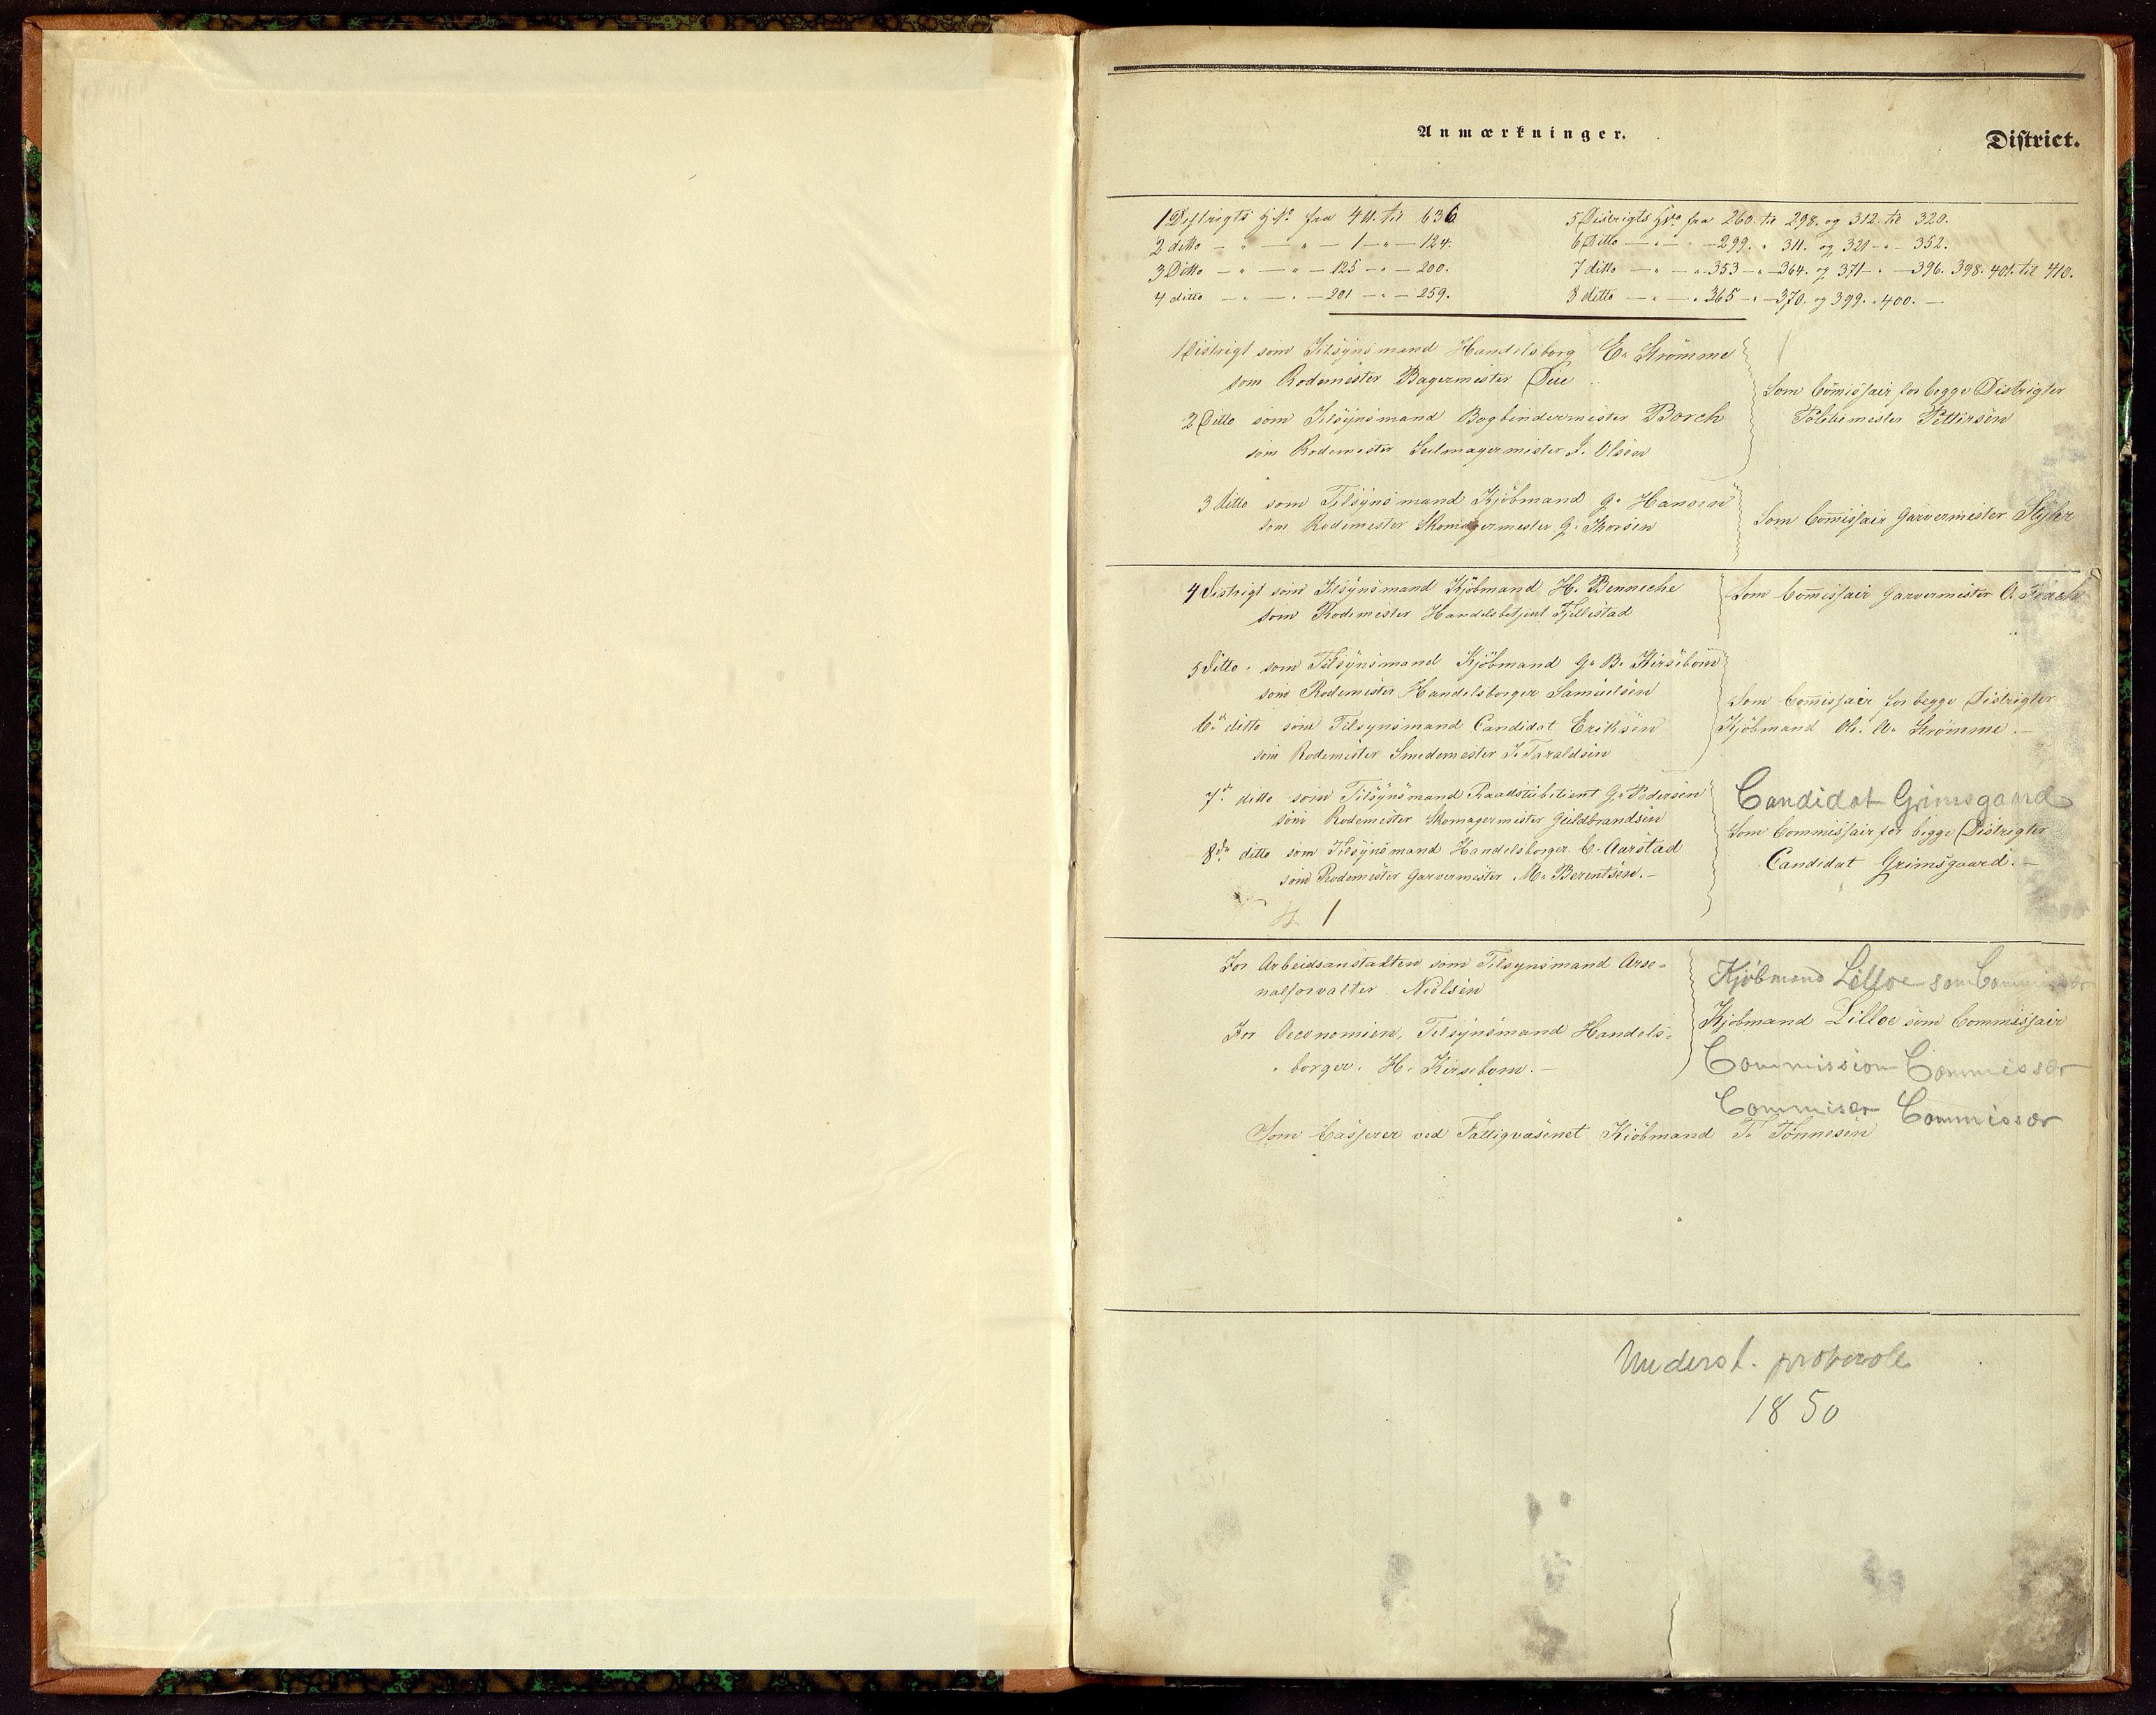 Anmærkninger.
District.
1 Distrigts H No fra 411. til 636
2 ditto — " — " — 1 — " — 124.
3 Ditto — " — " — 125 — " — 200.
4 ditto — " — " — 201 — " — 259.
5 Distrigts H No fra 260. til 298. og 312. til 320.
6 Ditto — " — " — 299. " 311. og 321 — " — 352.
7 ditto — " — " 353 — " — 364. og 371 — " — 396. 398. 401. til 410.
8 ditto — " — " 365 — " — 370. og 399. " 400. —
1 Distrigt som Tilsynsmand Handelsborg E. Strømme
som Rodemester Bagermester
2 Ditto som Tilsynsmand Bogbindermester Borch
som Rodemester Seilmagermister J. Olsen
Som Com̄issair for begge Distrigter
Politimester Pettersen
3 ditto som Tilsynsmand Kjöbmand G. Hansen
som Rodemester Skomagermester G. Thorsen
Som Com̄issair Garvermester Styhr
4 Distrigt som Tilsynsmand Kjöbmand H. Benneche
som Rodemester Handelsbetjent Fjellestad
Som Com̄issair Garvermester O.
5 Ditto. som Tilsynsmand Kjöbmand G. B. Kirsebom
som Rodemester Handelsborger Samuelsen
6te ditto som Tilsynsmand Candidat Eriksen
som Rodemester Smedemester T. Taraldsen
Som Com̄issair for begge Distrigter
Kjöbmand A. Strömme. —
7de ditto som Tilsynsmand Raadstubetient G. Pedersen
som Rodemester Skomagermester Guldbrandsen
8de ditto som Tilsynsmand Handelsborger C. Aarstad
som Rodemester Garvermester M. Berentsen. —
1
Candidat Grimsgaard
Som Commissair for begge Distrigter
Candidat Grimsgaard. —
For Arbeidsanstalten som Tilsynsmand Arse-
nalforvalter Nielsen
For Oeconomien, Tilsynsmand Handels-
borger. H. Kirsebom. —
Kjöbmand Lilloe som Commissær
Kjöbmand Lilloe som Commissair
Commission Commissær
Commisær Commissær
Som Casserer ved Fattigvæsenet Kiöbmand T. Tönnesen
Underst. protocoll
1850